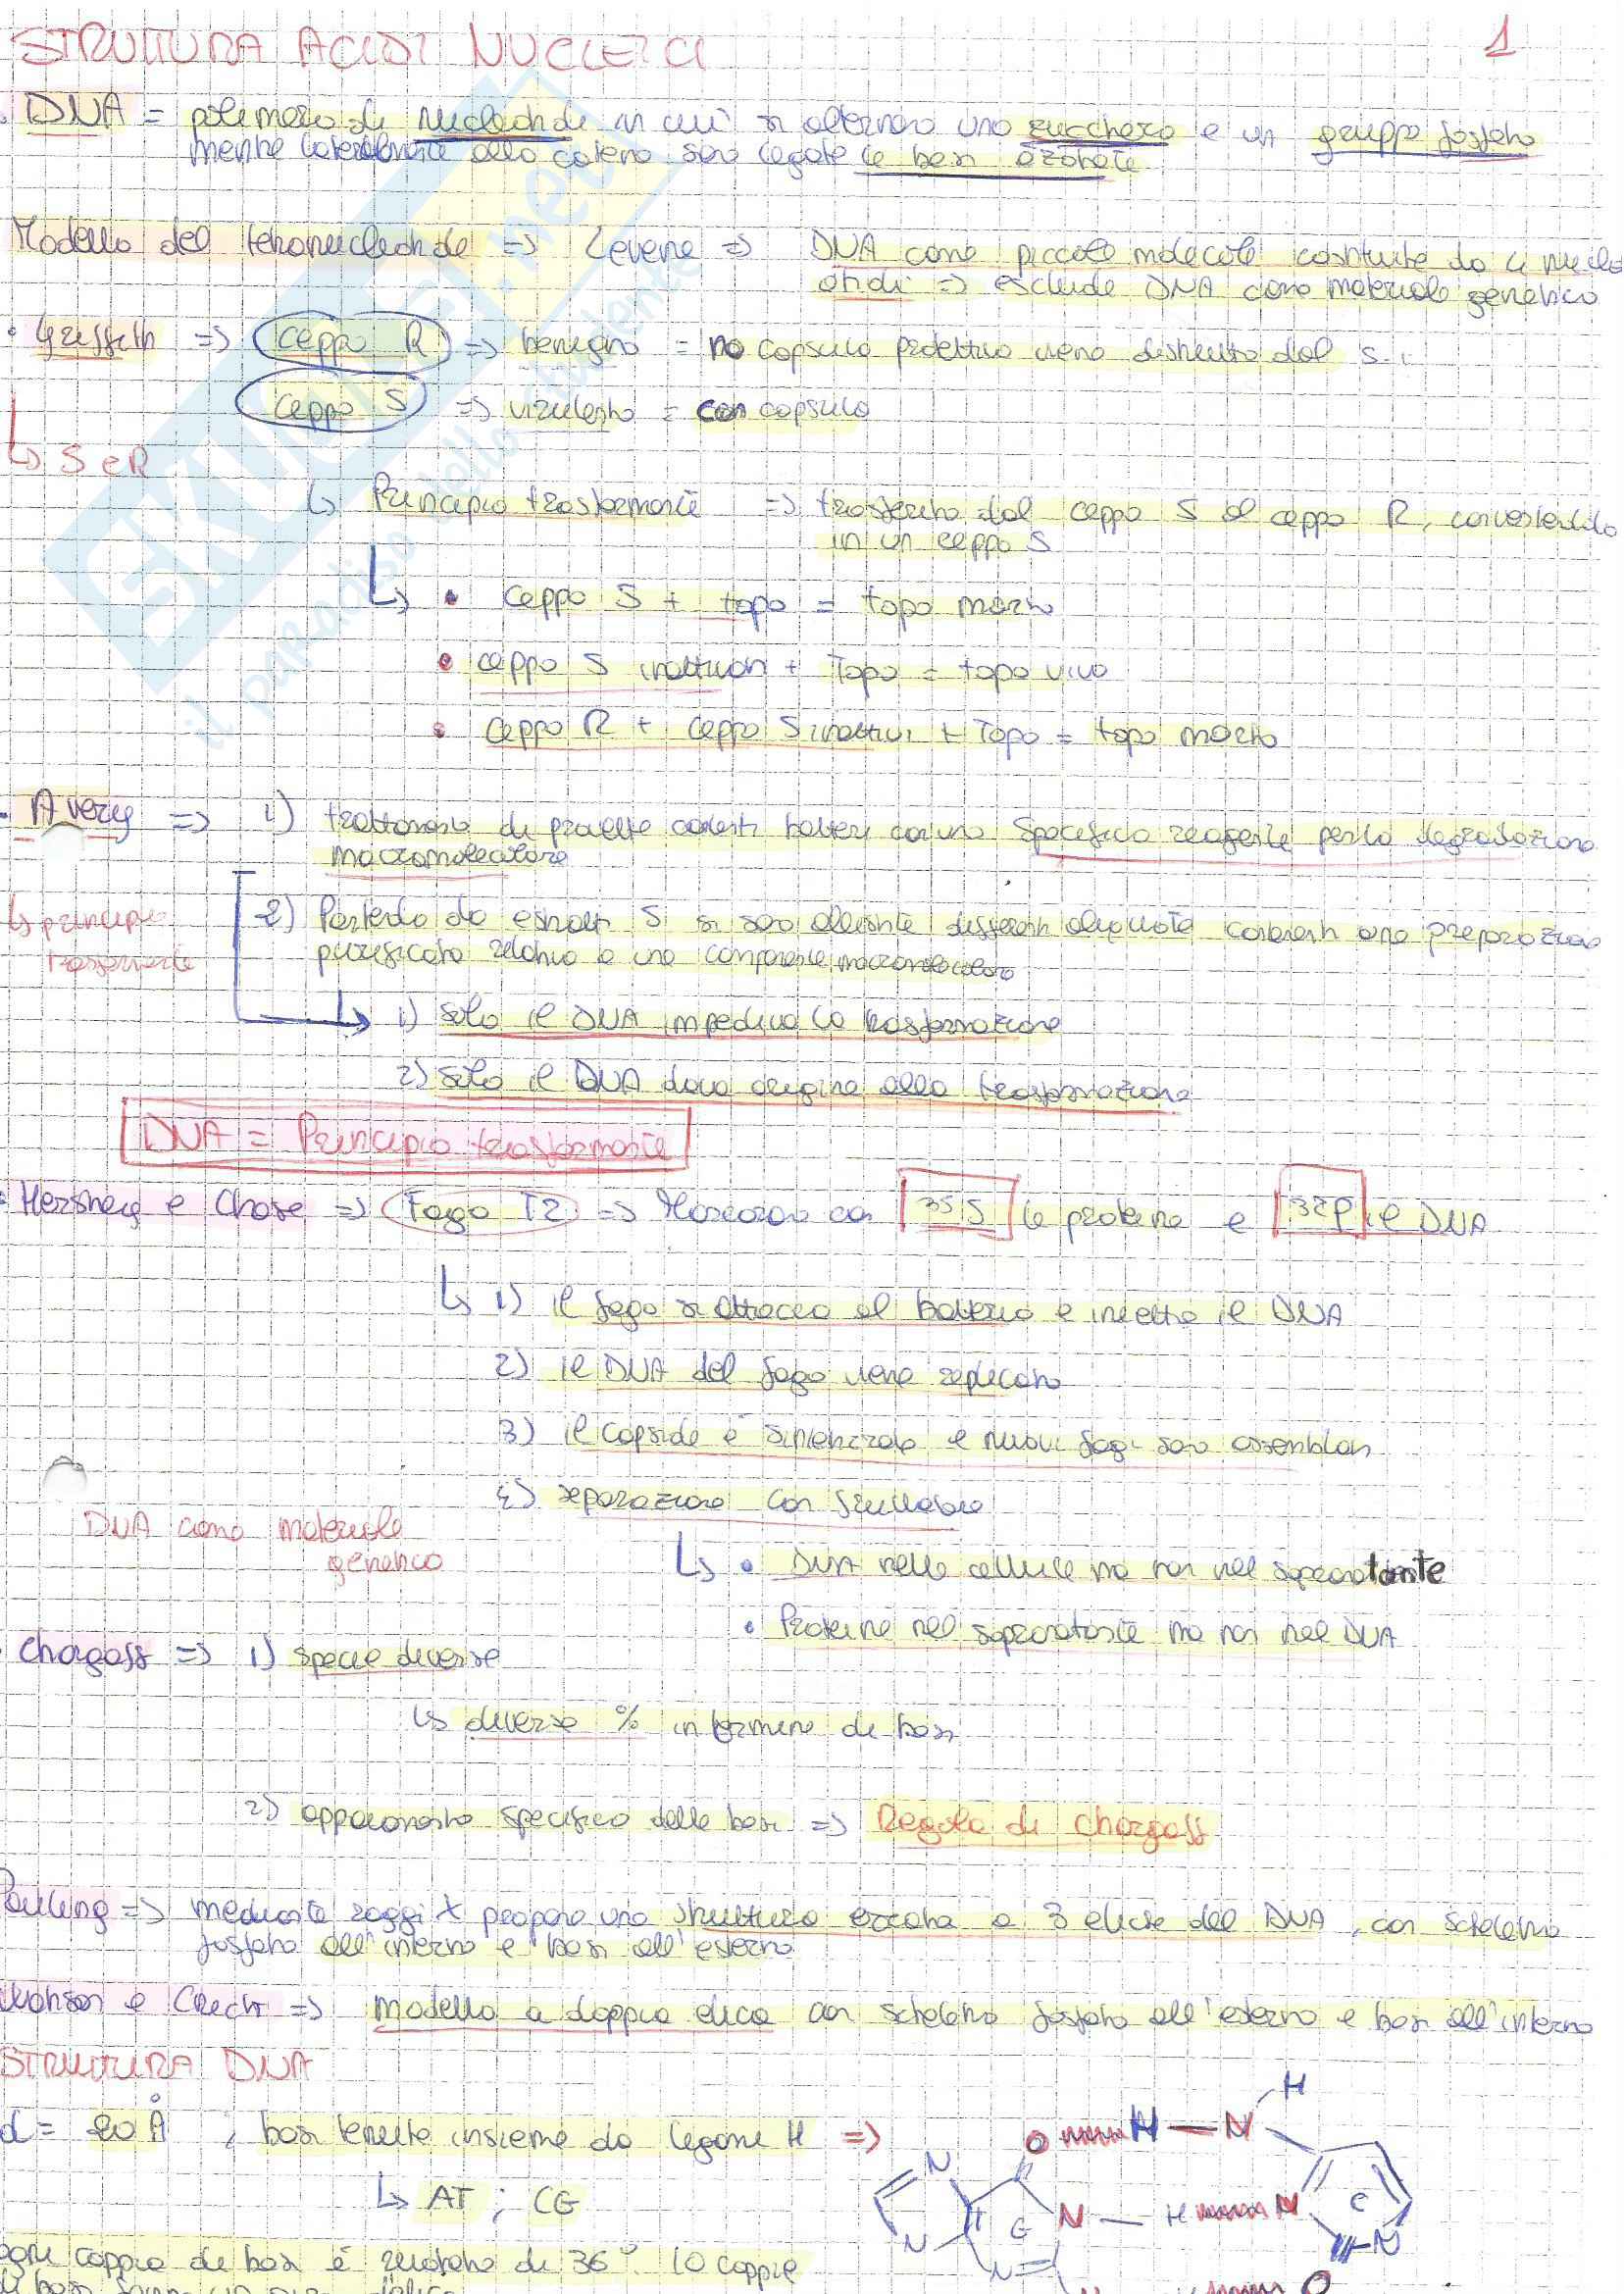 STRUTTURA ACIDI NUCLEICI 1
DNA = polimero di nucleotidi in cui si alternano uno zucchero e un gruppo fosfato
mentre lateralmente alla catena sono legate le basi azotate
Modello del tetranucleotide => Levene => DNA come piccole molecole costituite da 4 nucleo
otidi => esclude DNA come materiale genetico
• Griffith => ceppo R => benigno = no capsula protettiva viene distrutto dal s.i.
ceppo S => virulento = con capsula
↳ S e R
↳ Principio trasformante => trasferito dal ceppo S al ceppo R, convertendolo
in un ceppo S
↳ • ceppo S + topo = topo morto
• ceppo S inattivati + Topo = topo vivo
• ceppo R + ceppo S inattivi + Topo = topo morto
• Avery => 1) trattamento di provette contenti batteri con uno specifico reagente per la degradazione
macromolecolare
↳ principio
trasformante
2) Partendo da estratti S si sono allestite differenti aliquote contenenti una preparazione
purificata relativa a una componente macromolecolare
↳ 1) solo il DNA impediva la trasformazione
2) solo il DNA dava origine alla trasformazione
DNA = Principio trasformante
• Hershey e Chase => Fago T2 => Marcarono con 35S le proteine e 32P il DNA
↳ 1) il fago si attacca al batterio e inietta il DNA
2) il DNA del fago viene replicato
3) il capside è sintetizzato e nuovi fagi sono assemblati
4) separazione con frullatore
DNA come materiale
genetico
↳ • DNA nelle cellule ma non nel sopranatante
• Proteine nel sopranatante ma non nel DNA
• Chargaff => 1) specie diverse
↳ diverse % in termine di basi
2) appaiamento specifico delle basi => Regola di Chargaff
Pauling => mediante raggi X propone una struttura errata a 3 eliche del DNA, con scheletro
fosfato all'interno e basi all'esterno
Watson e Crick => modello a doppia elica con scheletro fosfato all'esterno e basi all'interno
STRUTTURA DNA
d = 20 Å , basi tenute insieme da legame H =>
↳ AT ; CG
ogni coppia di basi è ruotata di 36° 10 coppie
di basi
H
O H — N
N
N — H N
G C
N N
N
O
SKUOLA.net
il paradiso dello studente